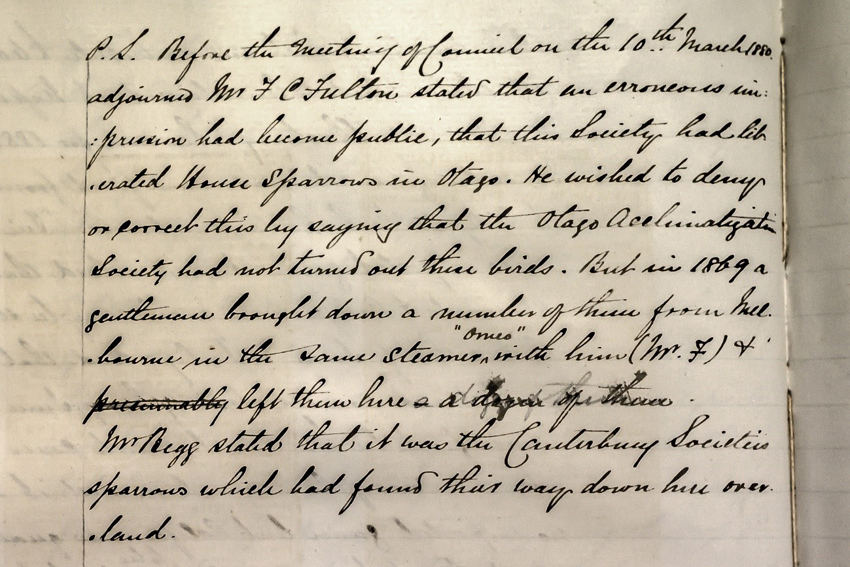 P.S. Before the Meeting of Council on the 10th March 1880.
adjourned Mr F C Fulton stated that an erroneous im:
:pression had become public, that this Society had lib
.erated House Sparrows in Otago. He wished to deny
or correct this by saying that the Otago Acclimatization
Society had not turned out these birds. But in 1869 a
gentleman brought down a number of them from Mel.
"Omeo"
.bourne in the same steamer ^ with him (Mr. F) &
presumably left them here a dozen of them.
Mr Begg stated that it was the Canterbury Societies
sparrows which had found their way down here over.
.land.